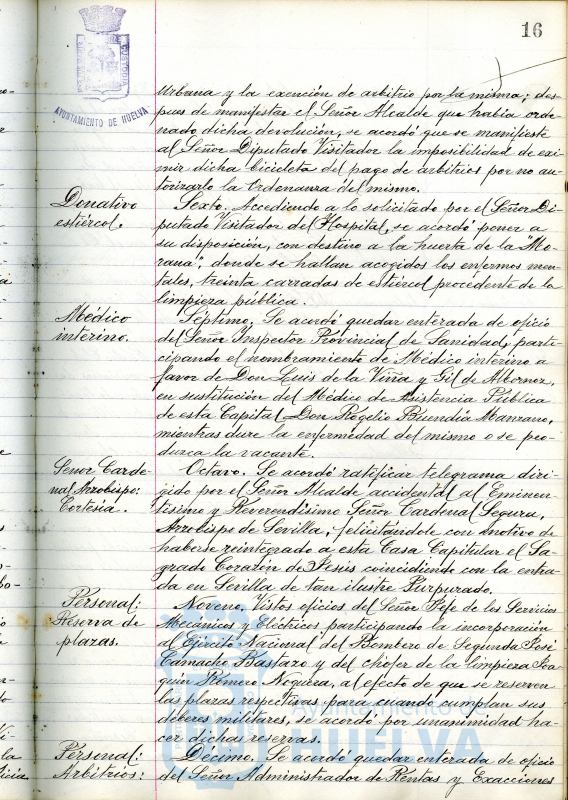 16
AYUNTAMIENTO DE HUELVA
urbana y la exención de arbitrio por la misma; des-
pues de manifestar el Señor Alcalde que habia orde-
nado dicha devolución, se acordó que se manifieste
al Señor Diputado Visitador la imposibilidad de exi-
mir dicha bicicleta del pago de arbitrios por no au-
torizarlo la Ordenanza del mismo.
Donativo
estiércol.
Sexto. Accediendo a lo solicitado por el Señor Di-
putado Visitador del Hospital, se acordó poner a
su disposición, con destino a la huerta de la "Mo-
rana", donde se hallan acogidos los enfermos men-
tales, treinta carradas de estiércol procedente de la
limpieza pública.
Médico
interino.
Séptimo. Se acordó quedar enterada de oficio
del Señor Inspector Provincial de Sanidad, parti-
cipando el nombramiento de Médico interino a
favor de Don Luis de la Viña y Gil de Albornoz,
en sustitución del Médico de Asistencia Pública
de esta Capital Don Rogelio Buendía Manzano,
mientras dure la enfermedad del mismo o se pro-
duzca la vacante.
Señor Carde-
nal Arzobispo:
Cortesía.
Octavo. Se acordó ratificar telegrama diri-
gido por el Señor Alcalde accidental al Eminen-
tísimo y Reverendísimo Señor Cardenal Segura,
Arzobispo de Sevilla, felicitándole con motivo de
haberse reintegrado a esta Casa Capitular el Sa-
grado Corazón de Jesús coincidiendo con la entra-
da en Sevilla de tan ilustre Purpurado.
Personal:
Reserva de
plazas.
Noveno. Vistos oficios del Señor Jefe de los Servicios
Mecánicos y Eléctricos participando la incorporación
al Ejército Nacional del Bombero de Segunda José
Camacho Bastazo y del chofer de la limpieza Joa-
quin Romero Noguera, al efecto de que se reserven
las plazas respectivas para cuando cumplan sus
deberes militares, se acordó por unanimidad ha-
cer dichas reservas.
Personal:
Arbitrios:
Décimo. Se acordó quedar enterada de oficio
del Señor Administrador de Rentas y Exacciones
Ayuntamiento de
HUELVA